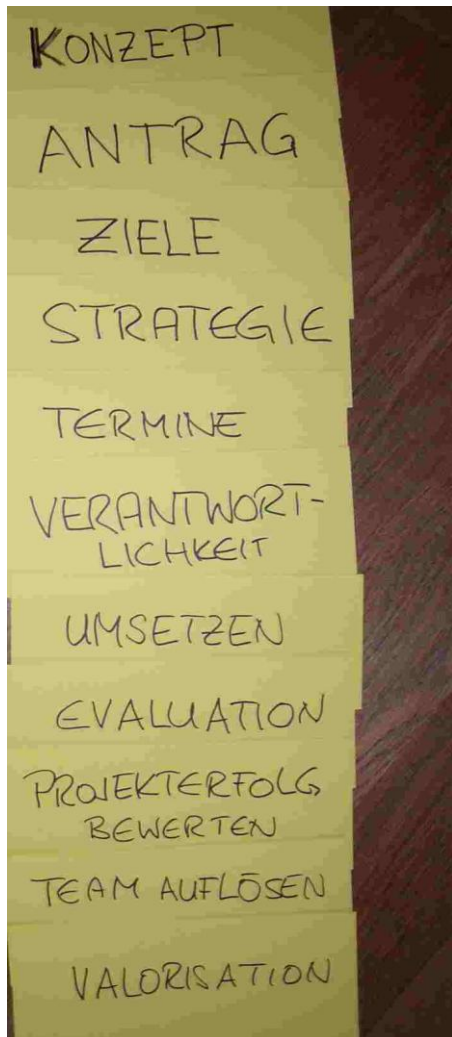 KONZEPT
ANTRAG
ZIELE
STRATEGIE
TERMINE
VERANTWORT-
LICHKEIT
UMSETZEN
EVALUATION
PROJEKTERFOLG
BEWERTEN
TEAM AUFLÖSEN
VALORISATION